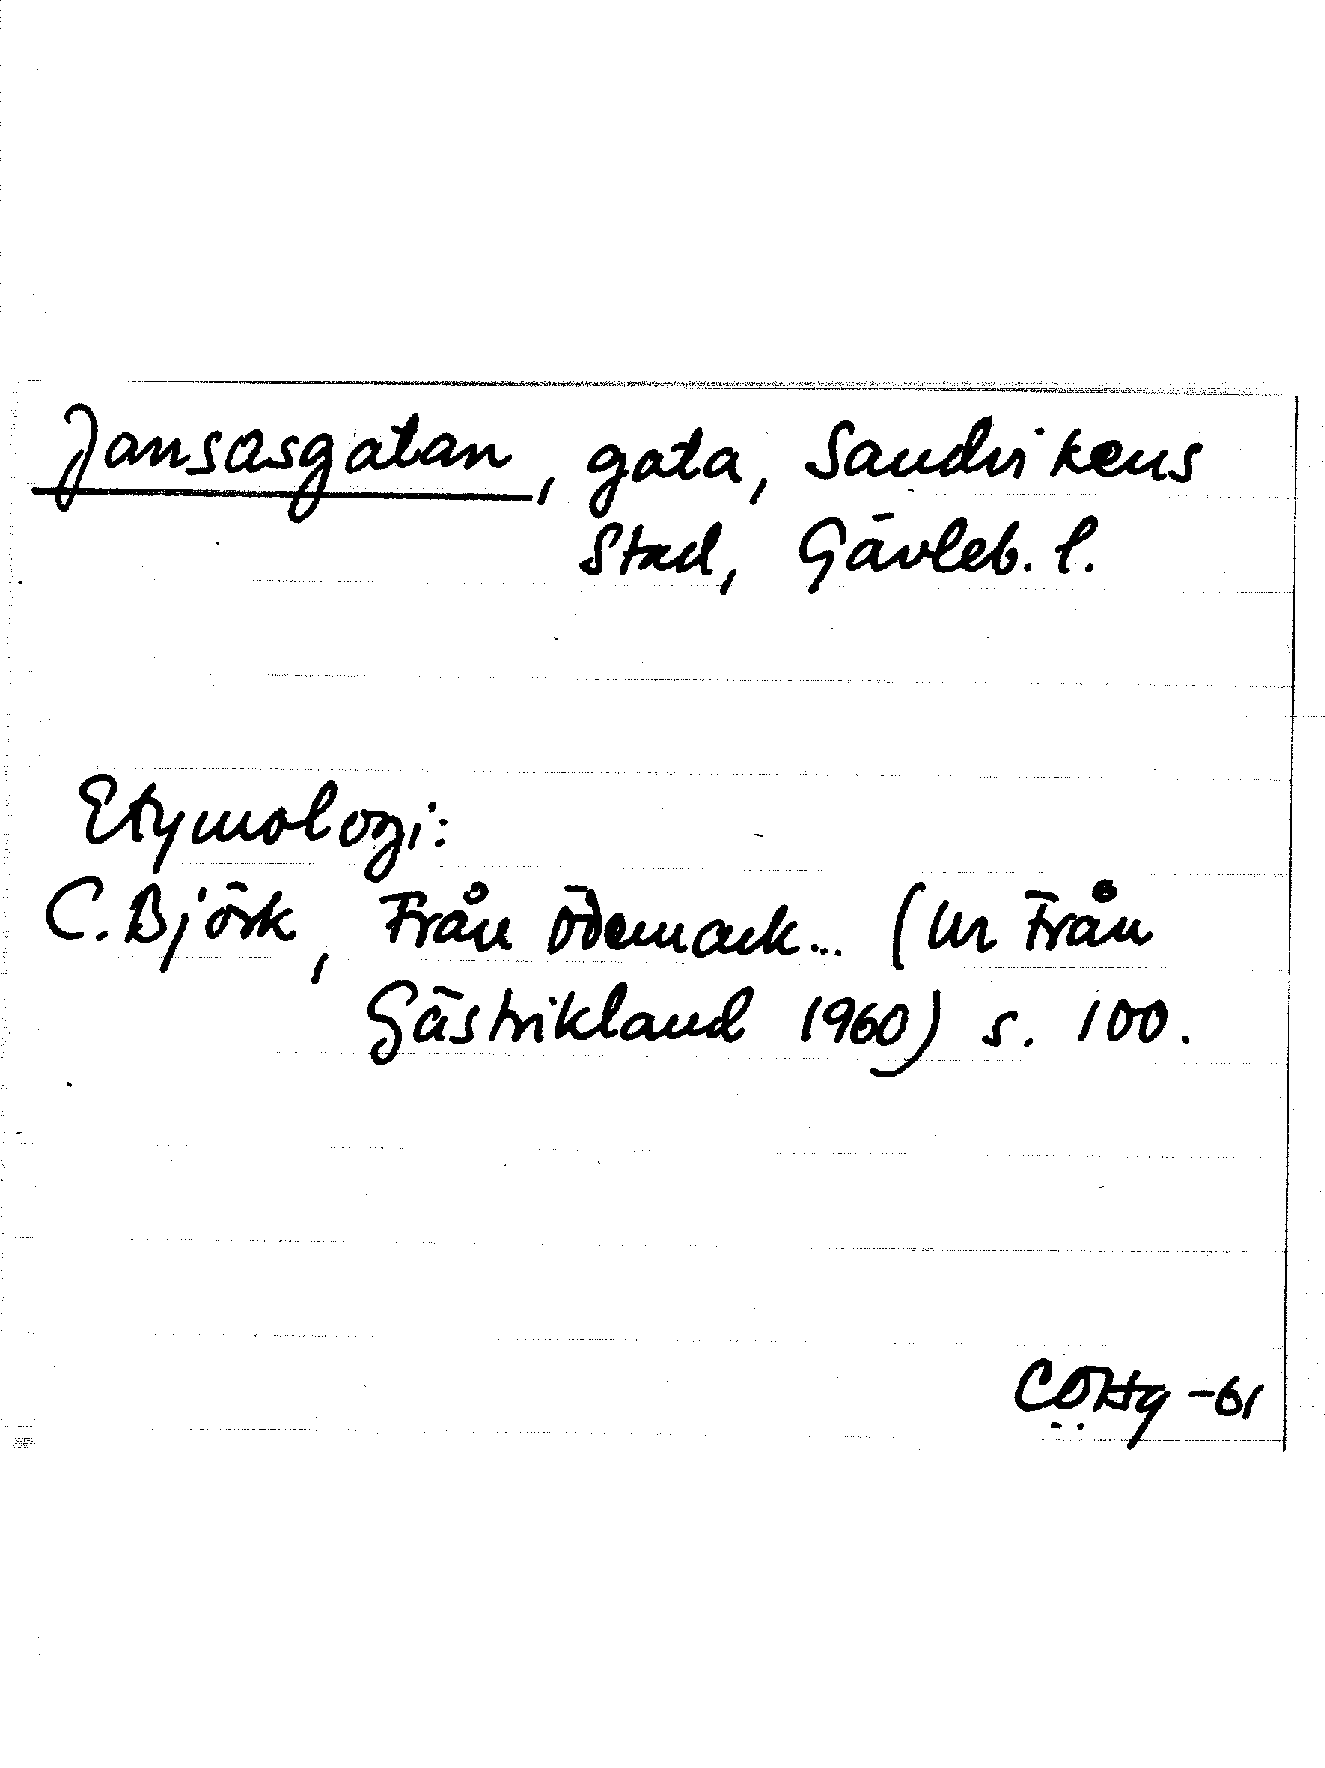 Jansasgatan, gata, Sandvikens
stad, Gävleb. l.
Etymologi:
C. Björk, Från ödemark... (Ur Från
Gästrikland 1960) s. 100.
CÖHg -61